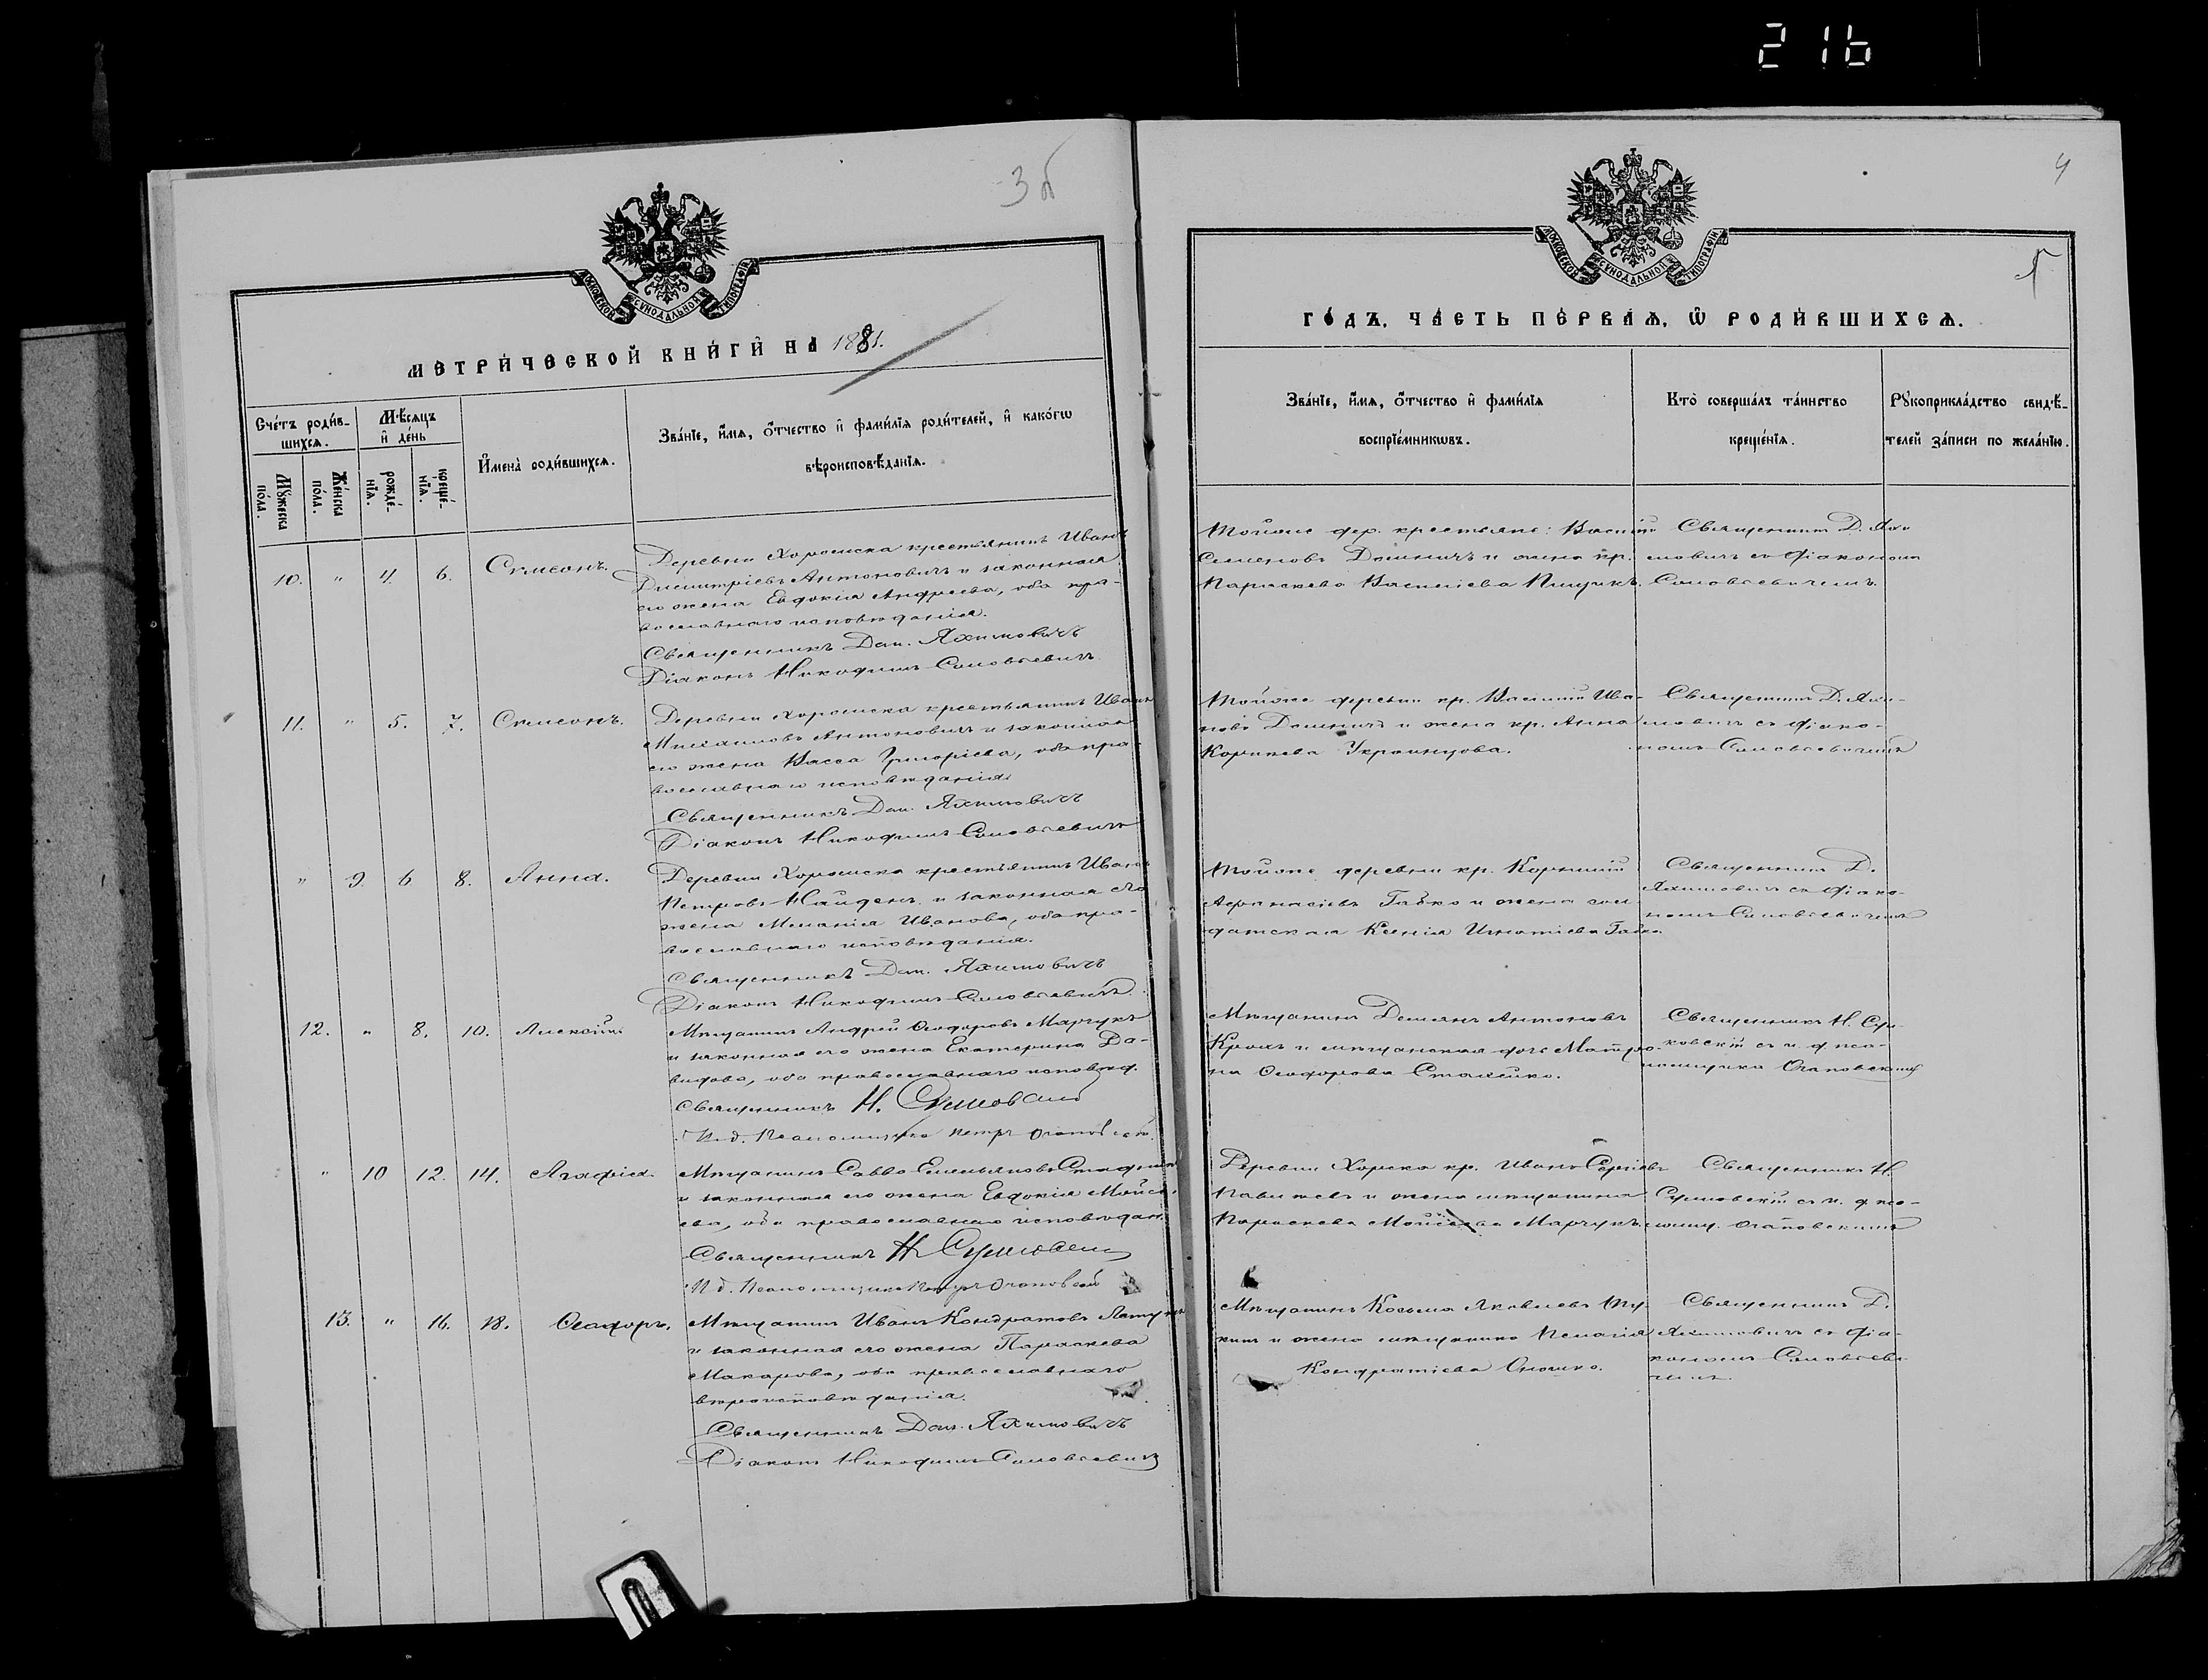 216
3б
4
5
МОСКОВСКОЙ СѴНОДАЛЬНОЙ ТИПОГРАФІИ
МЕТРИ́ЧЕСКОЙ КНИ́ГИ НА 1881.
Сче́тъ роди́в-
шихсѧ.
Мѣ́сѧцъ
и҆ де́нь
Мꙋ́жеска
по́ла.
Же́нска
по́ла.
рожде́-
нїѧ.
креще́-
нїѧ.
И҆мена̀ роди́вшихсѧ.
Зва́нїе, и҆́мѧ, ѻ҆́тчество и҆ фами́лїѧ роди́телей, и҆ како́гѡ
вѣроисповѣ́данїѧ.
10. " 4. 6. Симеонъ.
Деревни Хоромска крестьянинъ Иванъ
Димитріевъ Антоновичъ и законная
его жена Евдокія Андреева, оба пра-
вославнаго исповѣданія.
Священникъ Дан. Яхимовичъ
Діаконъ Никодимъ Соловьевичъ
11. " 5. 7. Симеонъ.
Деревни Хоромска крестьянинъ Иванъ
Михаиловъ Антоновичъ и законная
его жена Васса Григоріева, оба пра-
вославнаго исповѣданія
Священникъ Дан. Яхимовичъ
Діаконъ Никодимъ Соловьевичъ
" 9. 6 8. Анна.
Деревни Хоромска крестьянинъ Иванъ
Петровъ Найденъ и законная его
жена Меланія Иванова, оба пра-
вославнаго исповѣданія.
Священникъ Дан. Яхимовичъ
Діаконъ Никодимъ Соловьевичъ.
12. " 8. 10. Алексій
Мѣщанинъ Андрей Ѳеодоровъ Марчукъ
и законная его жена Екатерина Да-
видова, оба православнаго исповѣд.
Священникъ Н.
И. д. Псаломщика Петръ
" 10 12. 14. Агафія.
Мѣщанинъ Савва Емельяновъ
и законная его жена Евдокія Мойсе-
ева, оба православнаго исповѣдан.
Священникъ Н
И. д. Псаломщика Петръ
13. " 16. 18. Ѳеодоръ.
Мѣщанинъ Иванъ Кондратовъ
и законная его жена Параскева
Макарова, оба православнаго
вѣроисповѣданія.
Священникъ Дан. Яхимовичъ
Діаконъ Никодимъ Соловьевичъ
ГО́ДЪ, ЧА́СТЬ ПЕ́РВАѦ, Ѡ҆ РОДИ́ВШИХСѦ.
Зва́нїе, и҆́мѧ, ѻ҆́тчество и҆ фами́лїѧ
воспрїе́мникѡвъ.
Кто̀ соверша́лъ та́инство
креще́нїѧ.
Рꙋкоприкла́дство свидѣ́-
телей за́писи по жела́нїю.
Тойже дер. крестьяне: Василій
Семеновъ Домничъ и жена кр.
Параскева Василіева
Священникъ Д. Яхи-
мовичъ съ діакономъ
Соловьевичемъ.
Тойже деревни кр. Василій Ива-
новъ Домничъ и жена кр. Анна
Корнѣева Украинцова.
Священникъ Д. Яхи-
мовичъ съ діако-
номъ Соловьевичемъ
Тойже деревни кр. Корнилій
Афанасіевъ и жена сол-
датская Ксенія Игнатіева
Священникъ Д.
Яхимовичъ съ діако-
номъ Соловьевичемъ
Мѣщанинъ Демьянъ Антоновъ
и мѣщанская дочь Матро-
на Ѳеодорова
Священникъ Н.
съ и. д. пса-
ломщика
Деревни Хорска кр. Иванъ Сергіевъ
и жена мѣщанина
Параскева Мойсеева Марчукъ
Священникъ Н.
съ и. д. пса-
ломщ.
Мѣщанинъ Козьма Яковлевъ
и жена мѣщанина Пелагія
Кондратіева
Священникъ Д.
Яхимовичъ съ діа-
кономъ Соловьеви-
чемъ.